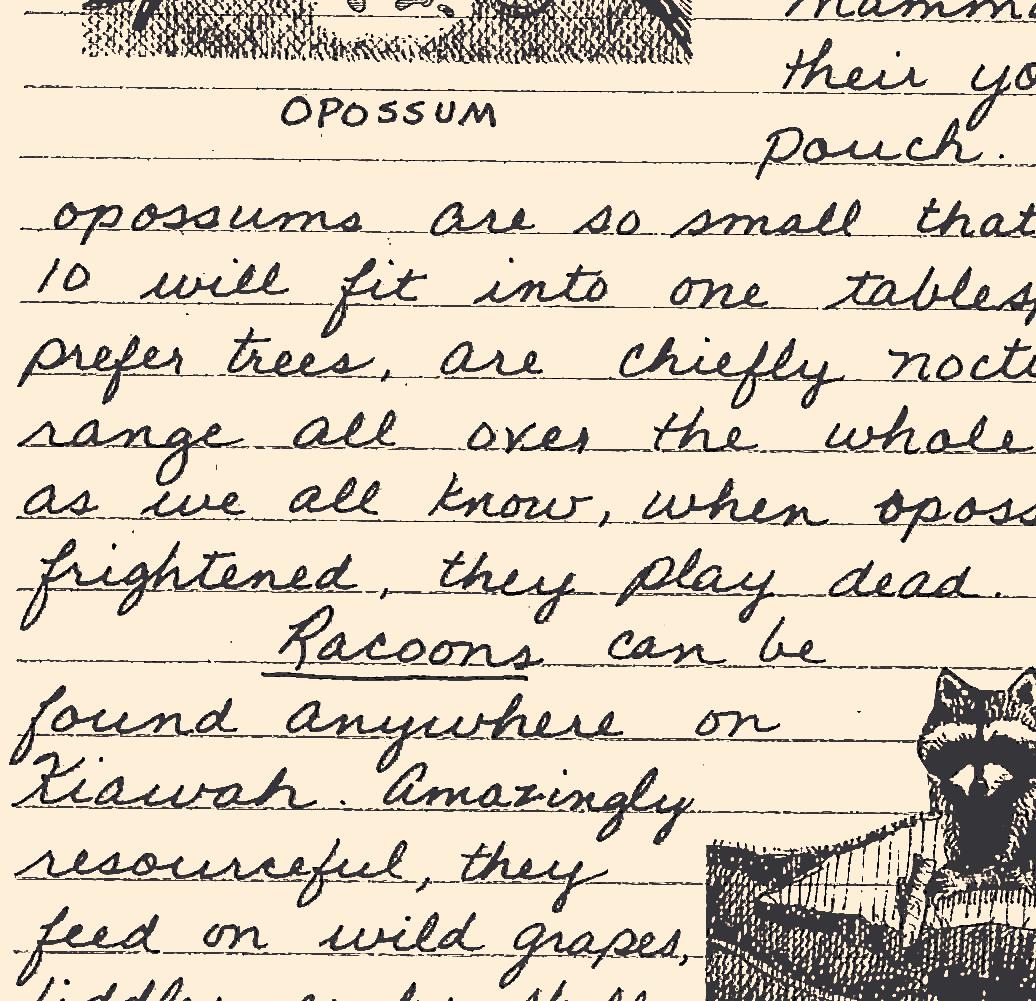 their
OPOSSUM
pouch.
opossums are so small that
10 will fit into one
prefer trees, are chiefly
range all over the whole
as we all know, when
frightened, they play dead.
Racoons can be
found anywhere on
Kiawah. Amazingly
resourceful, they
feed on wild grapes,